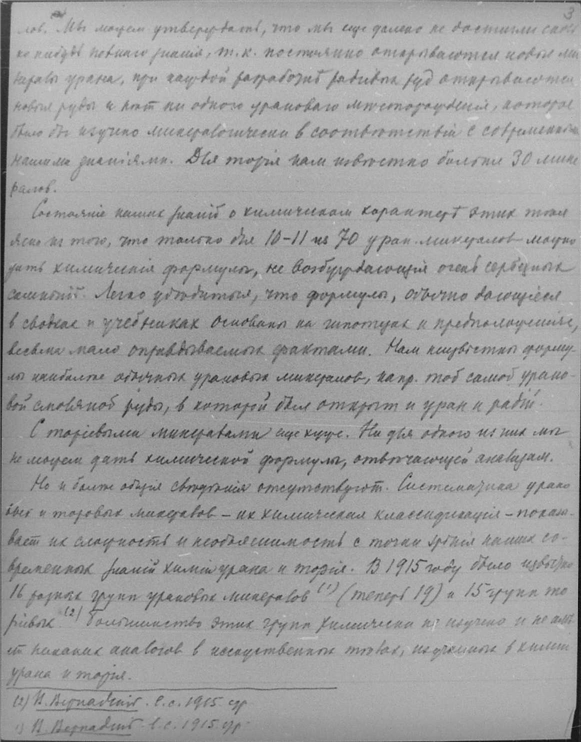 3
лов. Мы можем утверждать, что мы еще далеко не достигли сколь-
ко нибудь полнаго знанія, т.к. постоянно открываются новые ми-
нералы урана, при каждой разработкѣ радіевых руд открываются
новыя руды и нѣт ни одного уранового мѣсторожденія, которое
было бы изучено минералогически в соотвѣтствіи с современными
нашими знаніями. Для торія нам извѣстно больше 30 мине-
ралов.
Состояніе наших знаній о химическом характерѣ этих тѣл
ясно из того, что только для 10-11 из 70 уран. минералов можно
дать химическія формулы, не возбуждающія очень серьезных
сомнѣній. Легко убѣдиться, что формулы, обычно дающіеся
в сводках и учебниках основаны на гипотезах и предположеніях,
весьма мало оправдываемых фактами. Нам неизвѣстны форму-
лы наиболѣе обычных урановых минералов, напр. той самой урано-
вой смоляной руды, в которой был открыт и уран и радій.
С торіевыми минералами еще хуже. Ни для одного из них мы
не можем дать химической формулы, отвѣчающей анализам.
Но и болѣе общія свѣдѣнія отсутствуют. Систематика урано-
вых и торовых минералов – их химическая классификація – показы-
вает их сложность и необъяснимость с точки зрѣнія наших со-
временных знаній химіи урана и торія. В 1915 году было извѣстно
16 разных групп урановых минералов (1) (теперь 19) и 15 групп то-
ріевых (2) Большинство этих групп химически не изучено и не имѣ-
ет никаких аналогов в искусственных тѣлах, изученных в химіи
урана и торія.
В. Вернадскій. l.c. 1915 стр
В. Вернадскій l.c. 1915 стр.